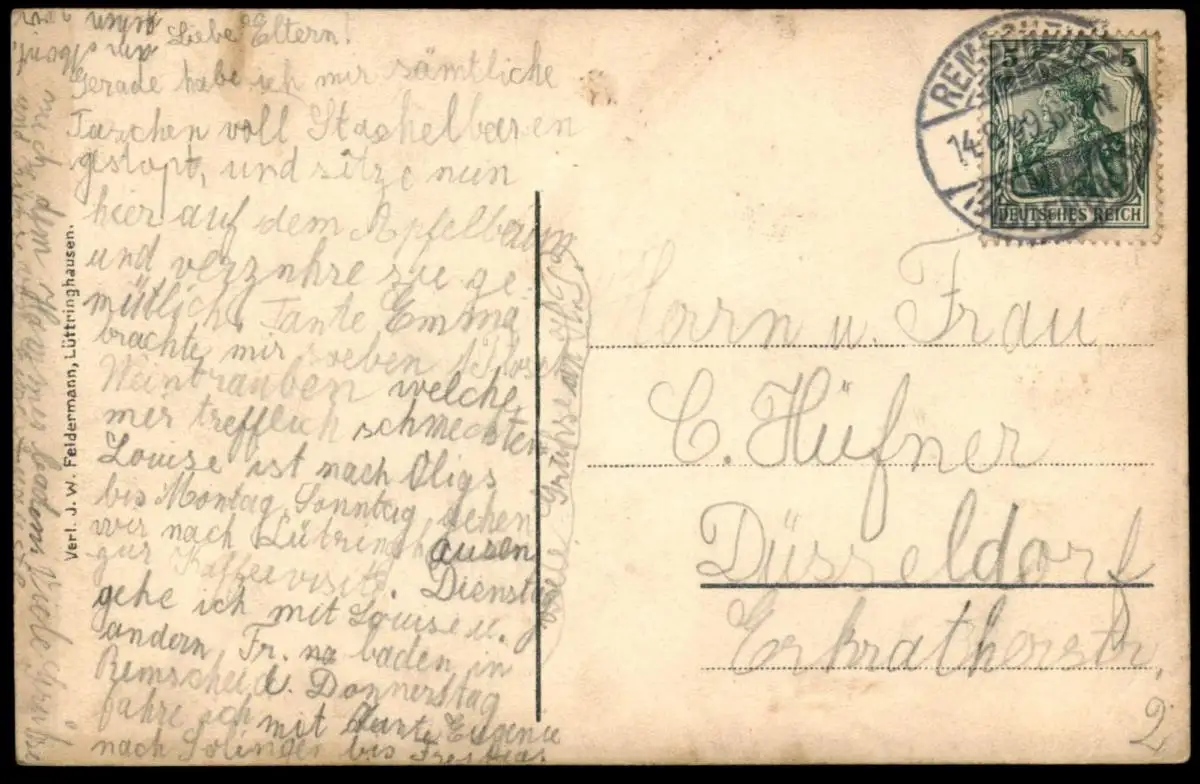 Liebe Eltern!
Gerade habe ich mir sämtliche
Taschen voll Stachelbaren
gestopt, und sitze nun
hier auf dem Apfelbaum
und verznhre sie ge
mütlich. Tante Emma
brachte mir soeben
Weintrauben welche
mir trefflich schmeckten
Louise ist nach Oligs
bis Montag, Sonntag gehen
wir nach Lütringhausen
zur Kaffeevisite. Dienstag
gehe ich mit Louise u.
andern Fr. na baden in
Remscheid. Donnerstag
fahre ich mit Tante Eugenie
nach Solingen bis Freitag
Viele Grüsse
Viele Grüsse an
Verl. J. W. Feldermann, Lüttringhausen.
5 5
DEUTSCHES REICH
14.8.09
Herrn u. Frau
C. Hüfner
Düsseldorf
Erkratherstr.
2